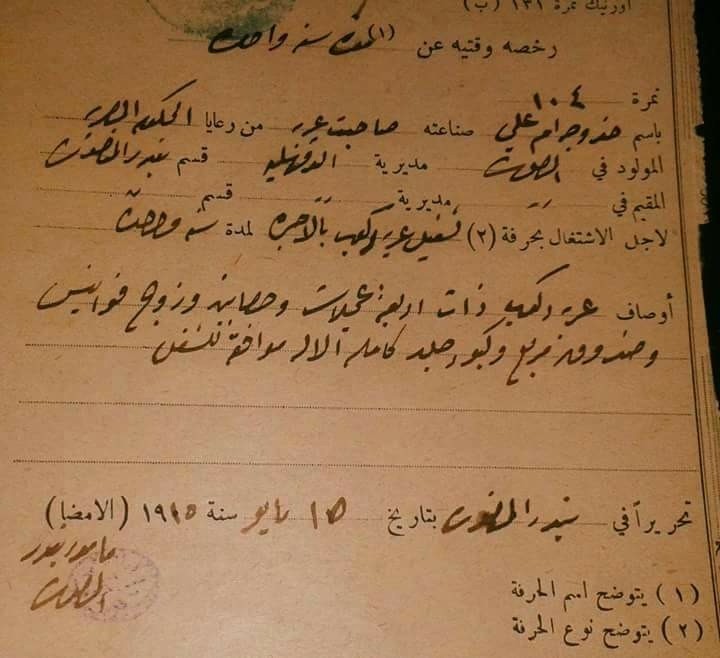 اورنيك نمرة ١٣١ (ب)
رخصه وقتيه عن (١) لمدة سنه واحده
نمرة ١٠٤
باسم علي صناعته صاحبت عربه من رعايا الحكومه المصريه
المولود في المنصوره مديرية الدقهليه قسم بندر المنصوره
المقيم في مديرية قسم
لاجل الاشتغال بحرفة (٢) تشغيل عربه ركوب بالأجره لمدة سنه واحده
أوصاف عربه ركوب ذات اربعة عجلات وحصانين وزوج فوانيس
وصندوق مربع وكبود جلد كامله الاله موافقة للشغل
تحريراً في بندر المنصوره بتاريخ ١٥ مايو سنة ١٩١٥ (الامضا)
مامور بندر
المنصوره
(١) يتوضح اسم الحرفة
(٢) يتوضح نوع الحرفة